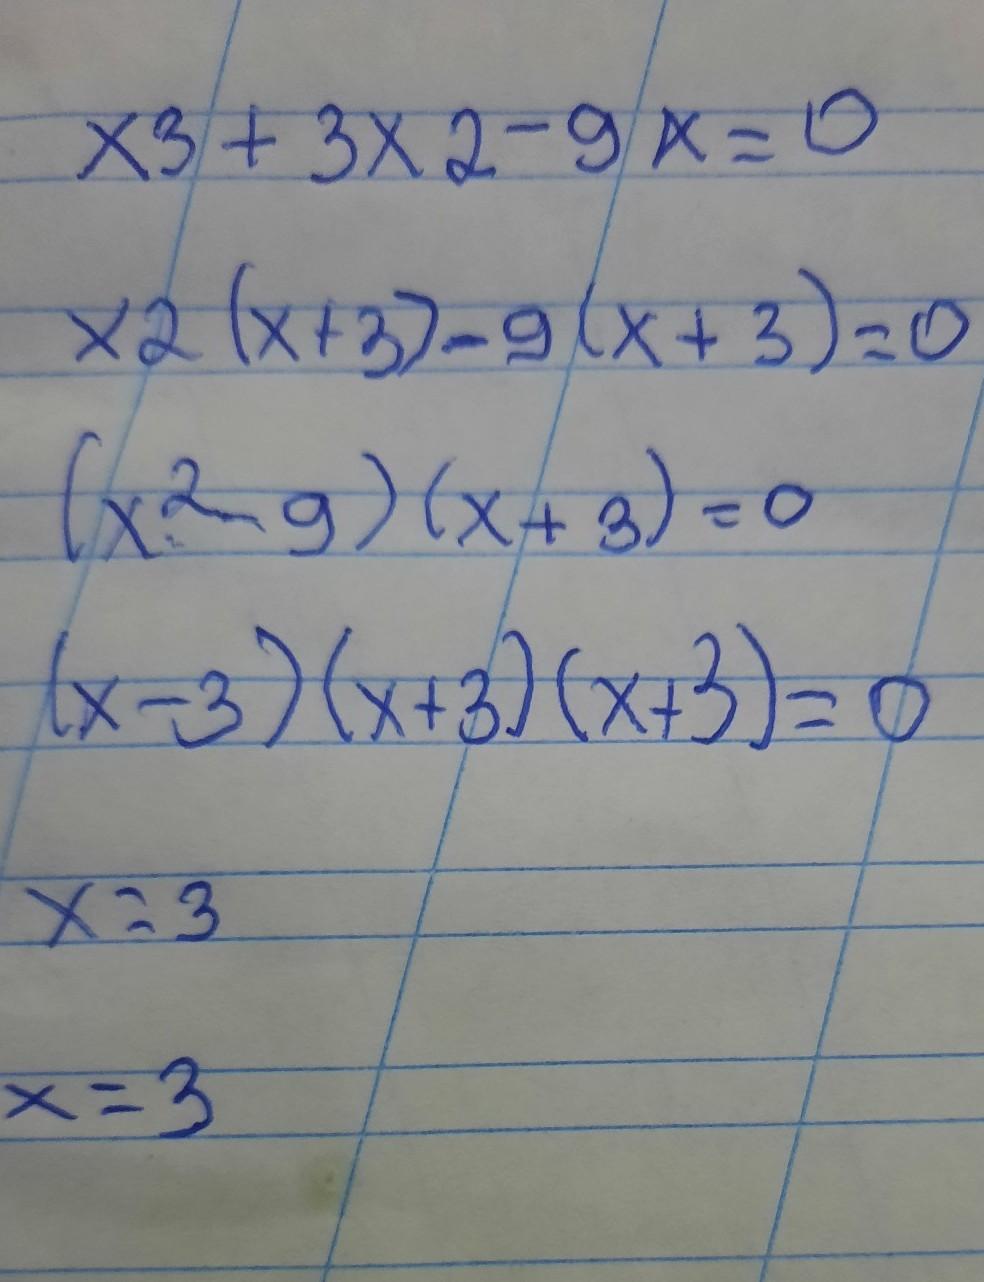 x3+3x2-9x=0
x2(x+3)-9(x+3)=0
(x²-9)(x+3)=0
(x-3)(x+3)(x+3)=0
x=3
x=3